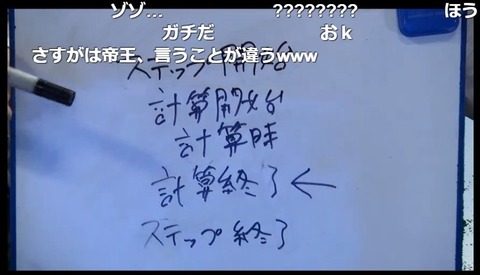 ゾゾ…
????????
ほう
ガチだ
おｋ
さすがは帝王、言うことが違うwww
ステップ開始
計算開始
計算時
計算終了 ←
ステップ終了